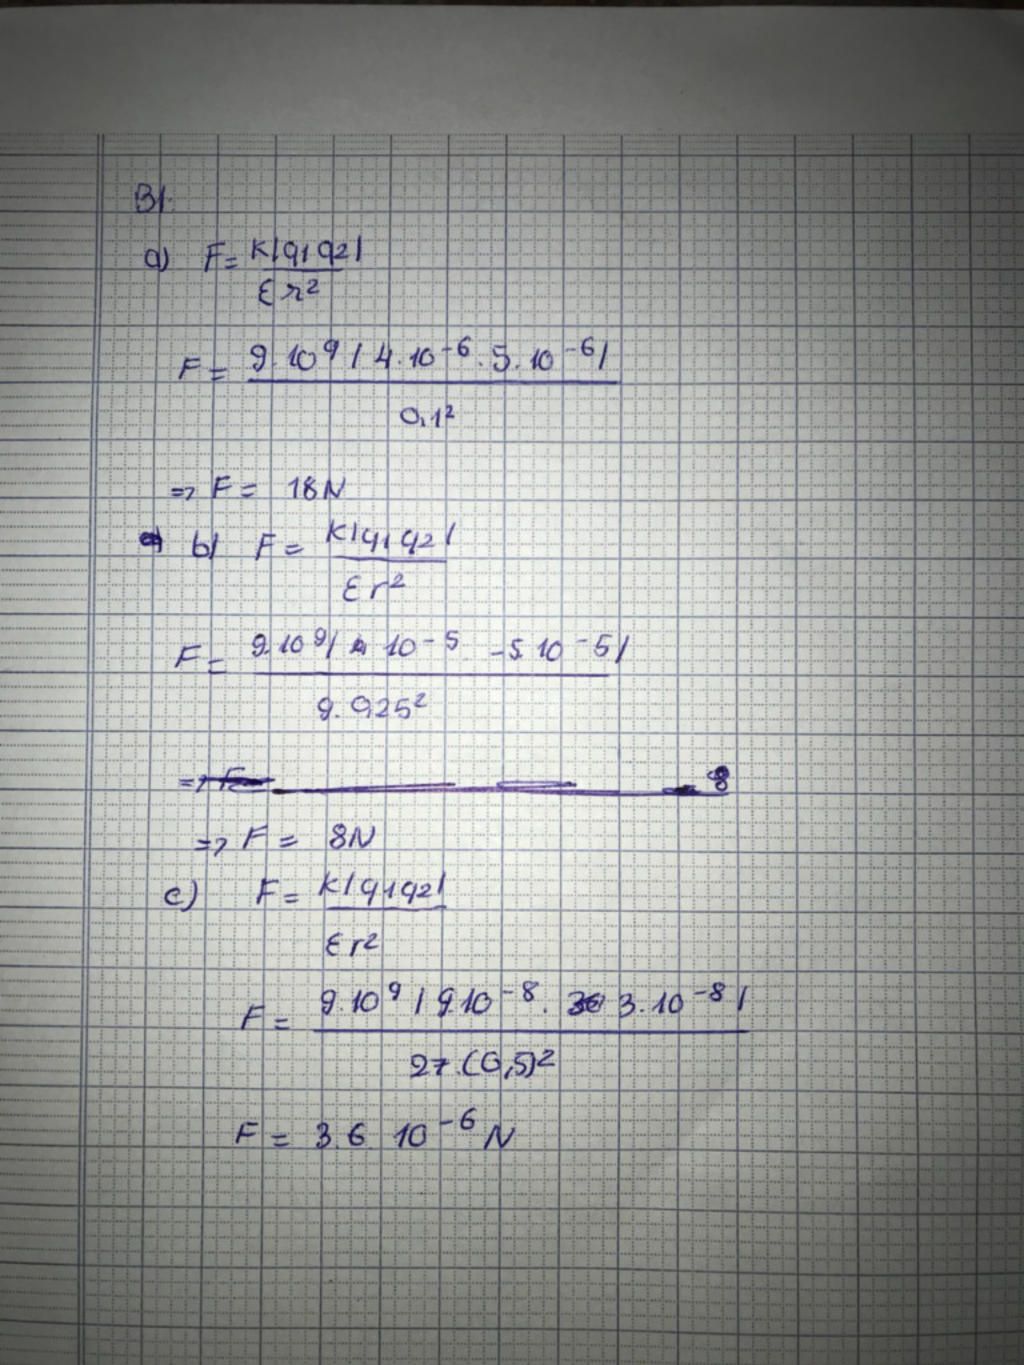 B1.
a) F = K|q1 q2| / εr²
F = 9.10⁹ | 4.10⁻⁶ . 5.10⁻⁶| / 0,1²
=> F = 18N
b) F = K|q1 q2| / εr²
F = 9.10⁹ | 10⁻⁵ . -5.10⁻⁵| / 9.0,25²
=> F = 8N
c) F = K|q1q2| / εr²
F = 9.10⁹ | 9.10⁻⁸ . 3.10⁻⁸| / 27.(0,5)²
F = 3.6 10⁻⁶ N